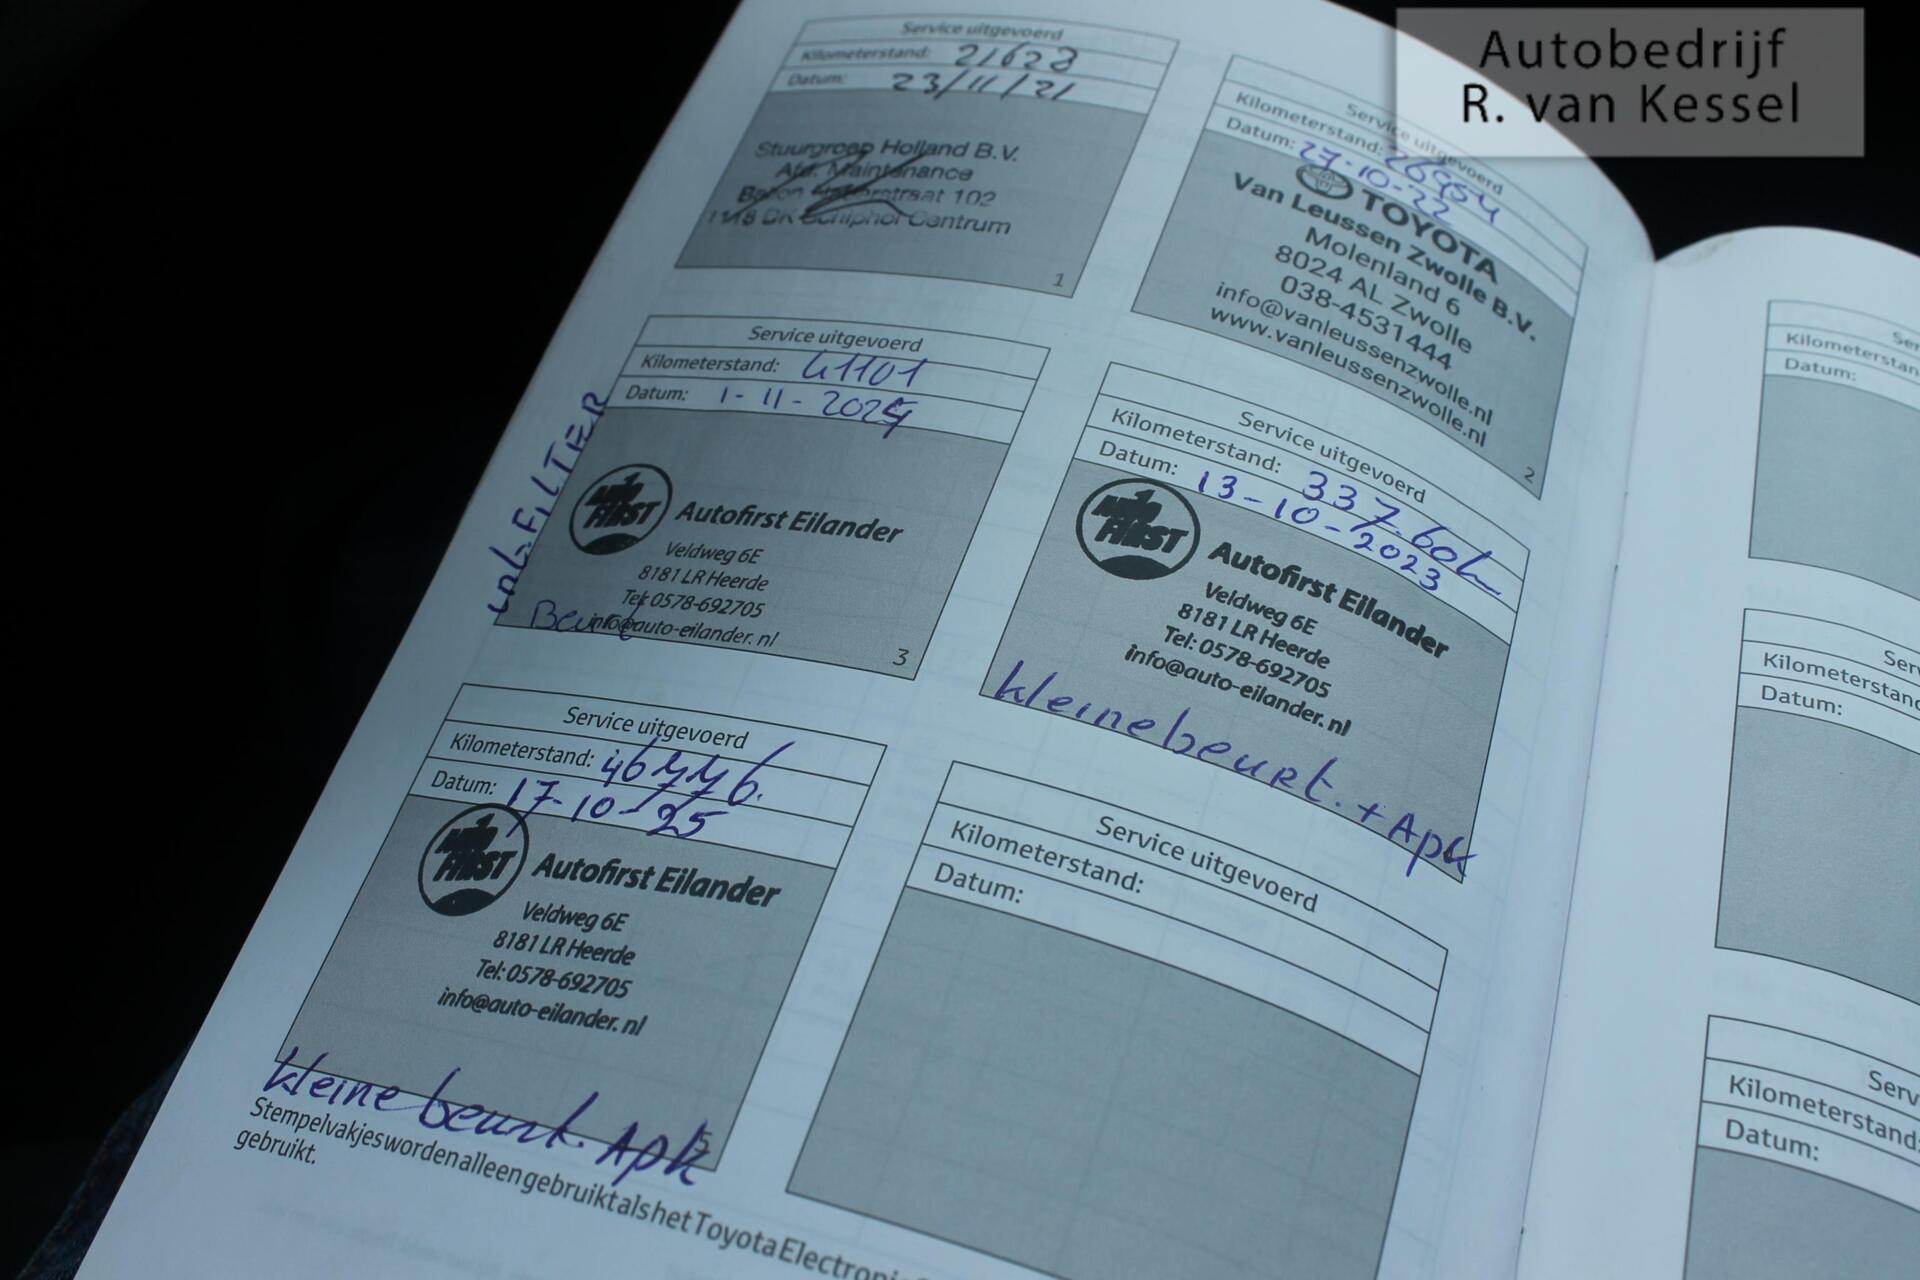 Autobedrijf
R. van Kessel
Service uitgevoerd
Kilometerstand: 21623
Datum: 23/11/21
Stuurgroep Holland B.V.
Afd. Maintenance
Baron straat 102
1118 DK Schiphol Centrum
1
Service uitgevoerd
Kilometerstand: 26954
Datum: 27-10-22
TOYOTA
Van Leussen Zwolle B.V.
Molenland 6
8024 AL Zwolle
038-4531444
info@vanleussenzwolle.nl
www.vanleussenzwolle.nl
2
Service uitgevoerd
Kilometerstand: 41101
Datum: 1-11-2024
№1 FIRST
Autofirst Eilander
Veldweg 6E
8181 LR Heerde
Tel: 0578-692705
info@auto-eilander.nl
Beurt
3
Service uitgevoerd
Kilometerstand: 33760
Datum: 13-10-2023
FIRST
Autofirst Eilander
Veldweg 6E
8181 LR Heerde
Tel: 0578-692705
info@auto-eilander.nl
kleine beurt. + Apk
Service uitgevoerd
Kilometerstand: 46776.
Datum: 17-10-25
FIRST
Autofirst Eilander
Veldweg 6E
8181 LR Heerde
Tel: 0578-692705
info@auto-eilander.nl
kleine beurt. Apk
5
Service uitgevoerd
Kilometerstand:
Datum:
Stempelvakjes worden alleen gebruikt als het Toyota Electronic
gebruikt.
Kilometerstan
Datum:
Kilometerstand
Datum:
Kilometerstand:
Datum: